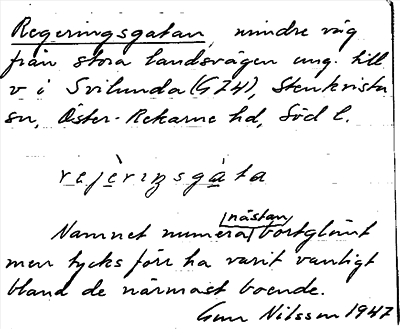 Regeringsgatan, mindre väg
från stora landsvägen ung. till
v i Svilunda (GZH), Stenkvista
sn, Öster-Rekarne hd, Söd l.
rejèriŋsgàta
Namnet numera nästan bortglömt
men tycks förr ha varit vanligt
bland de närmast boende.
Gun Nilsson 1947